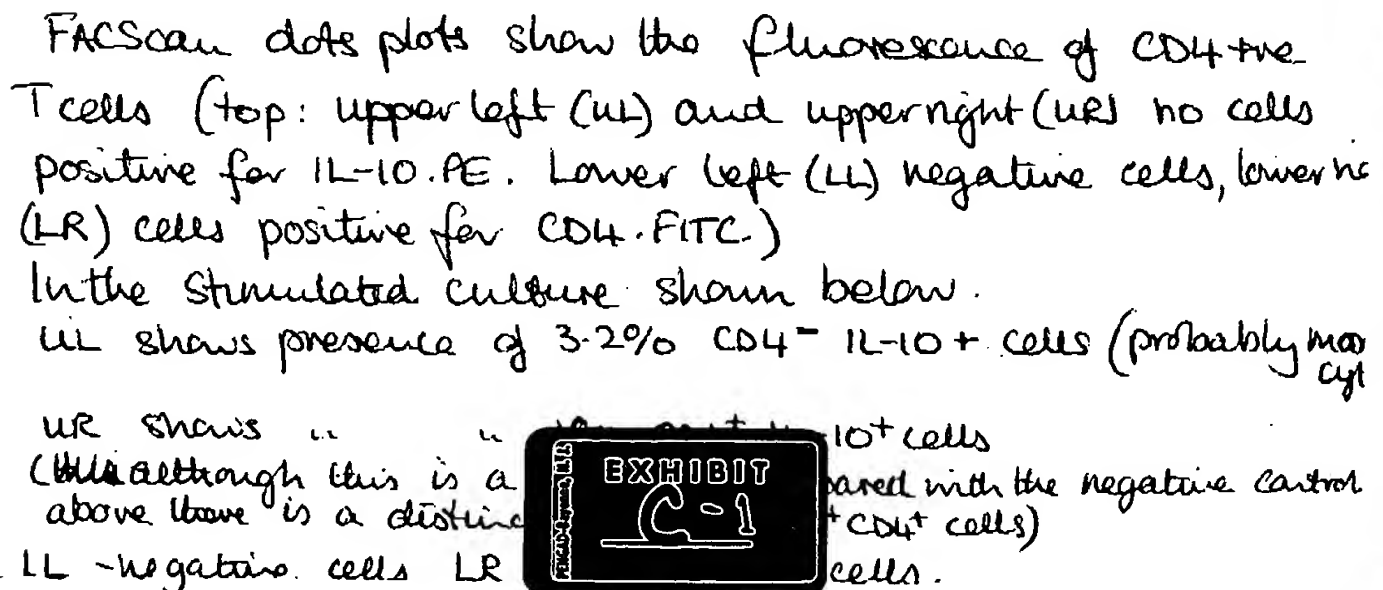 FACScan dots plots show the fluorescence of CD4 +ve
T cells (top: upper left (UL) and upper right (UR) no cells
positive for IL-10.PE. Lower left (LL) negative cells, lower
(LR) cells positive for CD4.FITC.)
In the stimulated culture shown below.
UL shows presence of 3.2% CD4- IL-10+ cells (probably
UR shows " " 10+ cells
(although this is a with the negative control
above there is a + CD4+ cells)
LL - negative cells LR cells.
EXHIBIT
C-1